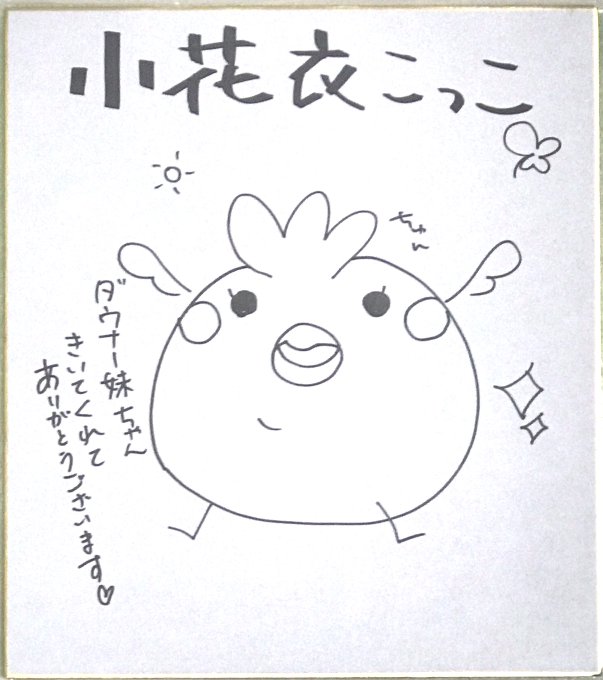 小花衣こっこ
ちゅん
ダウナー妹ちゃん
きいてくれて
ありがとうございます♡